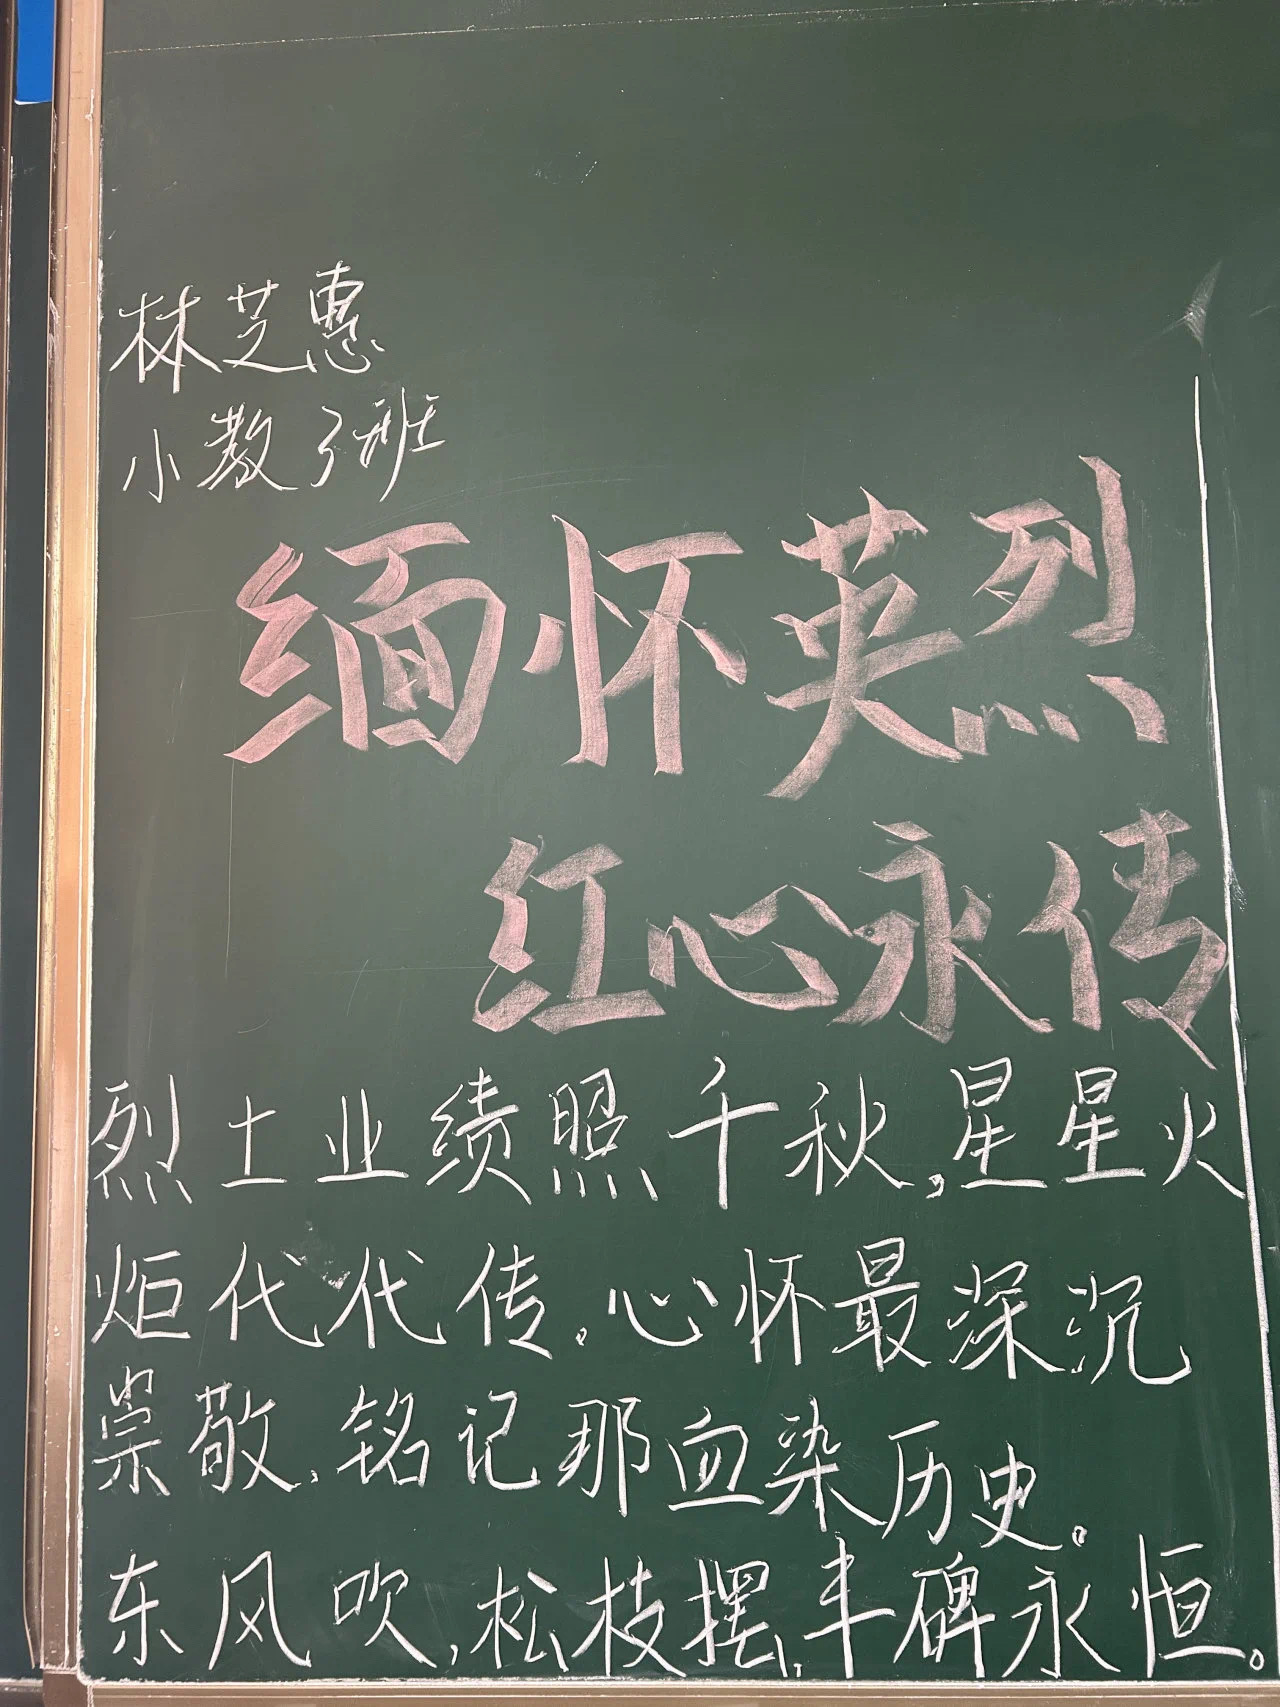 林芝惠
小教3班
缅怀英烈
红心永传
烈士业绩照千秋,星星火
炬代代传。心怀最深沉
崇敬,铭记那血染历史。
东风吹,松枝摆,丰碑永恒。